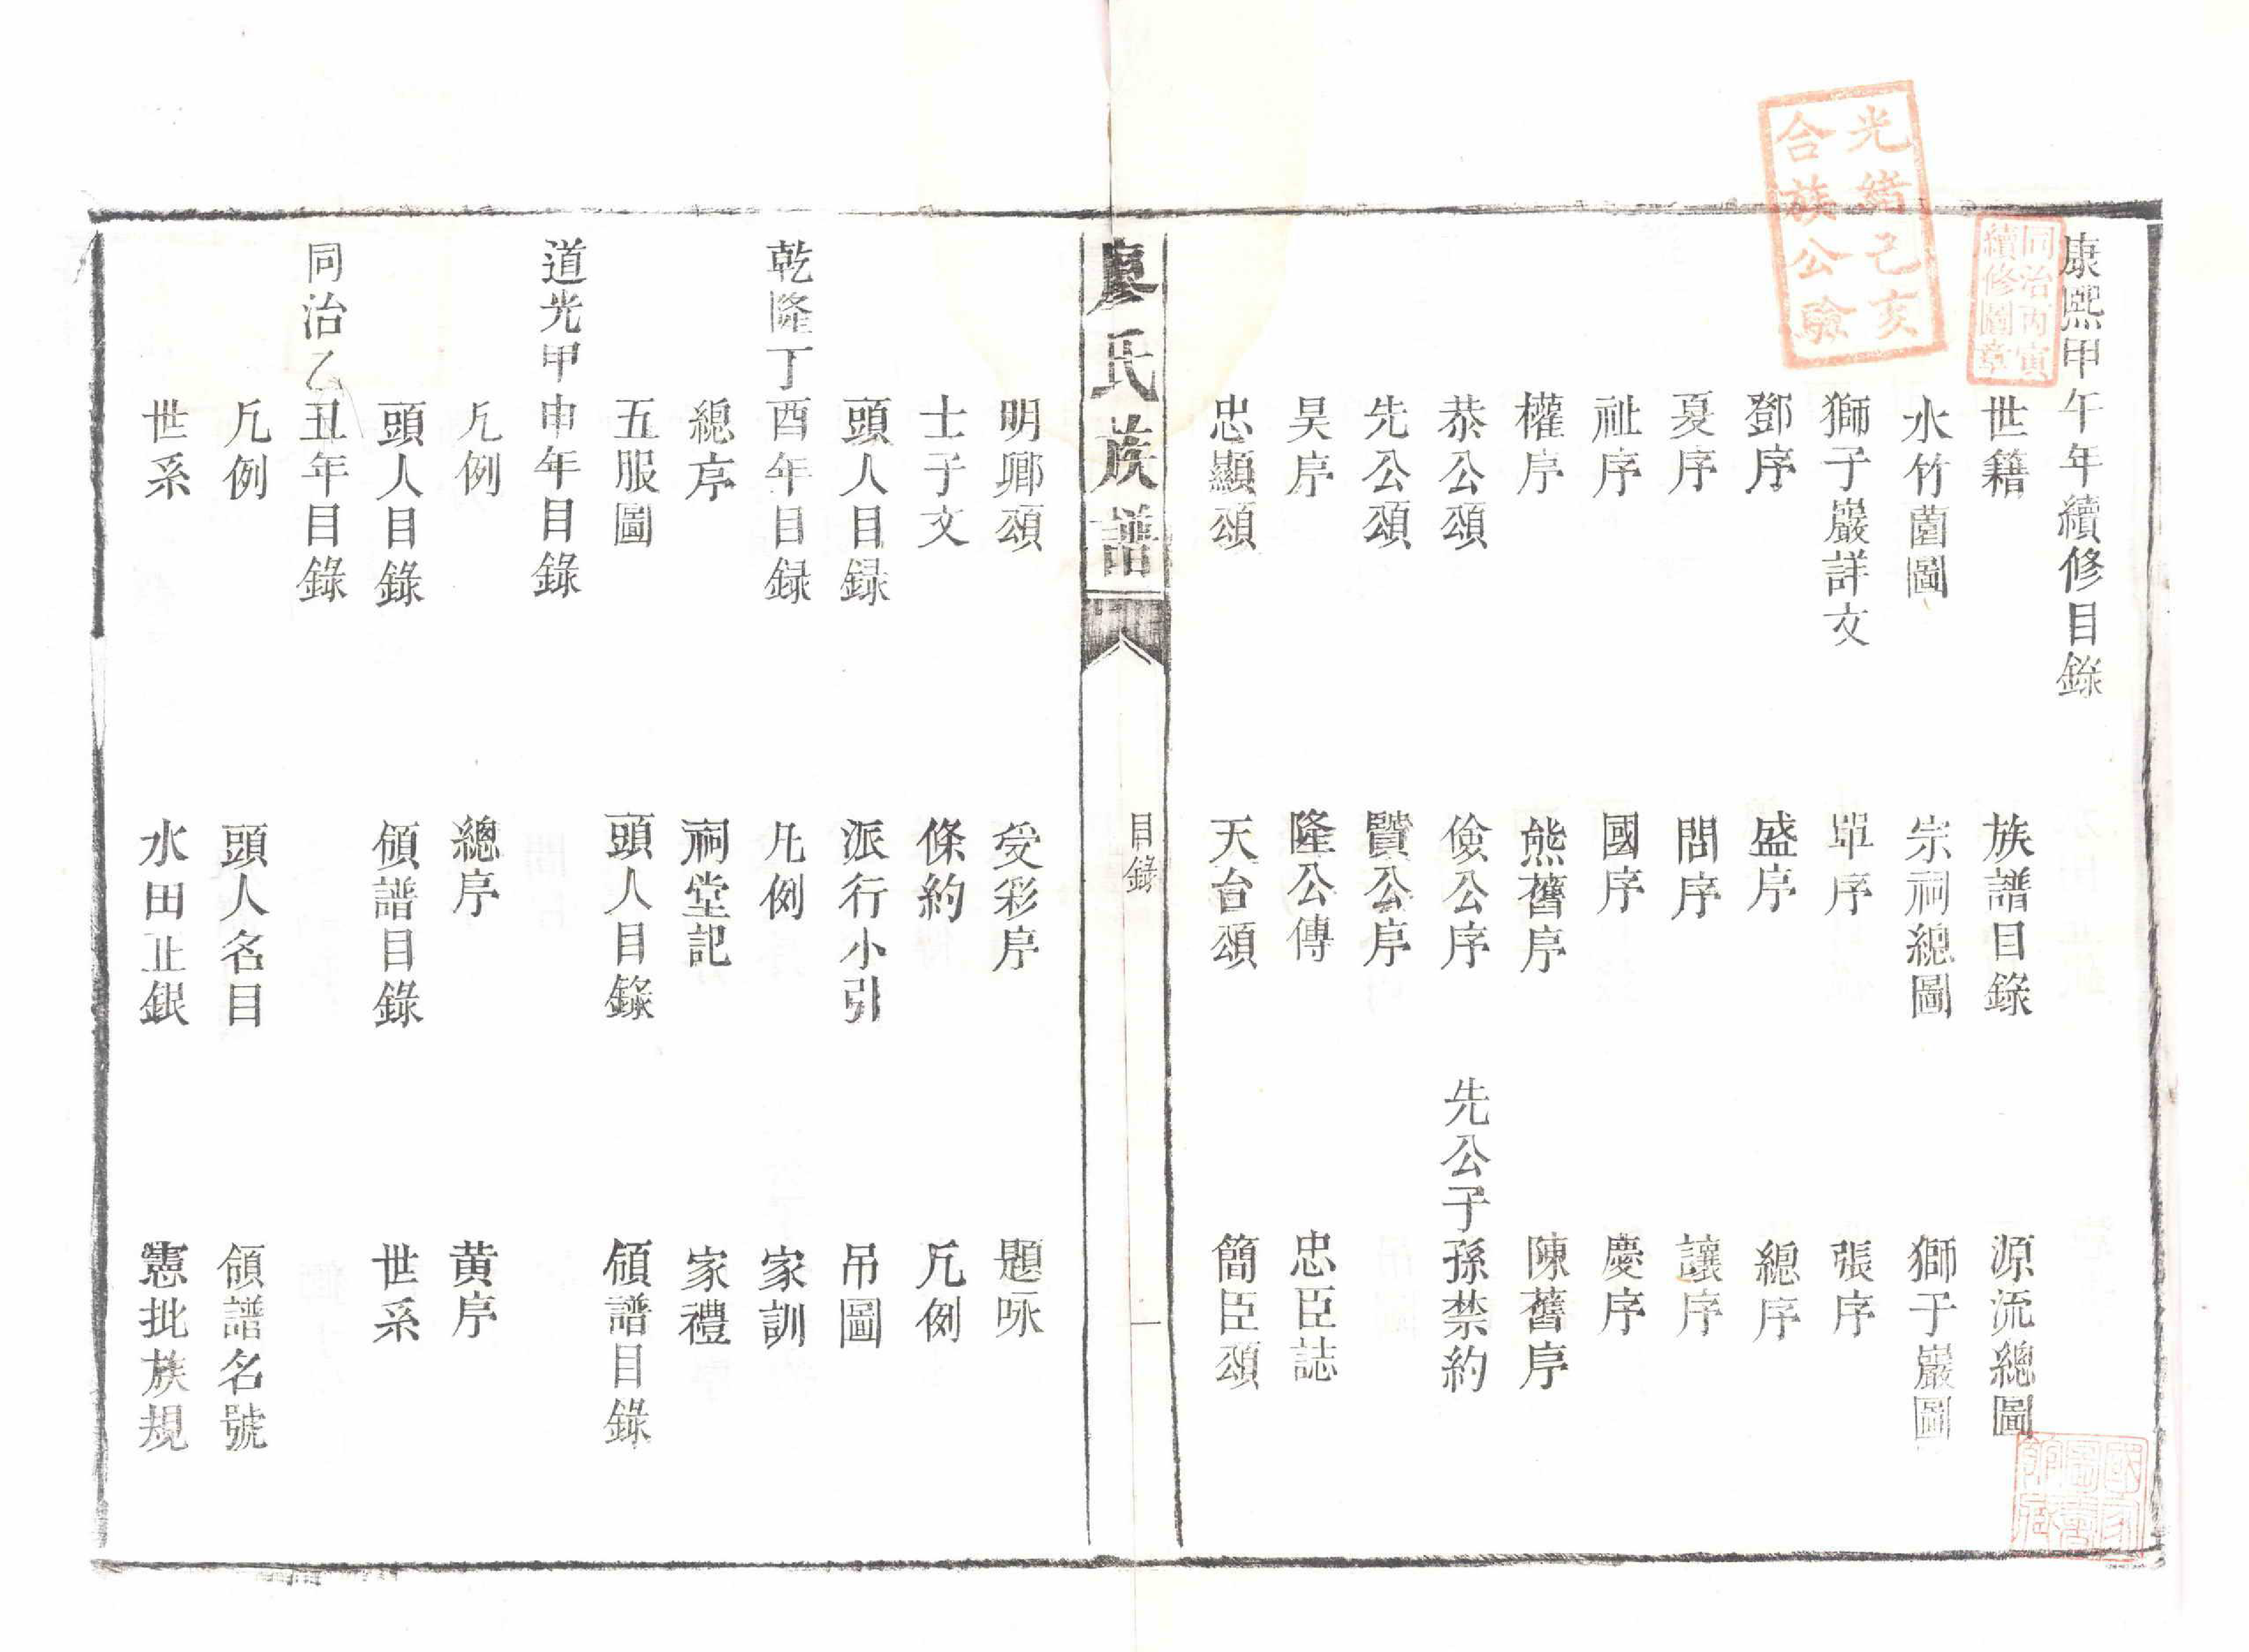 康熙甲午年續修目錄
世籍　族譜目錄　源流總圖
水竹薗圖　宗祠總圖　獅子巖圖
獅子巖詳文　單序　張序
鄧序　盛序　總序
夏序　問序　讓序
祉序　國序　慶序
權序　熊舊序　陳舊序
恭公頌　儉公序　先公子孫禁約
先公頌　贊公序
吴序　隆公傳　忠臣誌
忠顯頌　天台頌　簡臣頌
廖氏族譜　目錄　一
明卿頌　受彩序　題咏
士子文　條約　凡例
頭人目録　派行小引　吊圖
乾隆丁酉年目録　凡例　家訓
總序　祠堂記　家禮
五服圖　頭人目錄　領譜目錄
道光甲申年目錄
凡例　總序　黃序
頭人目錄　領譜目錄　世系
同治乙丑年目錄
凡例　頭人名目　領譜名號
世系　水田正銀　憲批族規
光緒己亥
合族公驗
同治丙寅
續修圖章
國家
圖書
館藏